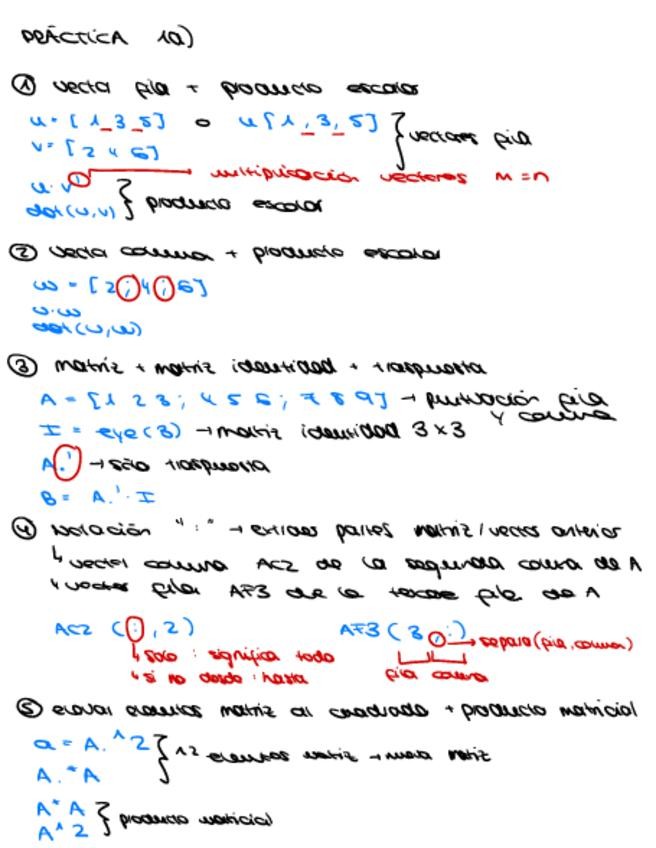 PRÁCTICA 1a)
① vector fila + producto escalar
u = [ 1 3 5] o u[ 1 , 3 , 5] } vectores fila
v = [ 2 4 6]
multiplicación vectores m = n
u·v'
dot(u,v) } producto escalar
② vector columna + producto escalar
w = [ 2 ; 4 ; 6]
u·w
dot(u,w)
③ matriz + matriz identidad + traspuesta
A = [1 2 3 ; 4 5 6 ; 7 8 9] → puntuación fila y columna
I = eye(3) → matriz identidad 3 x 3
A.' → sólo traspuesta
B = A.'· I
④ Notación " : " → extraer partes matriz/vector anterior
↳ vector columna AC2 de la segunda columna de A
↳ vector fila AF3 de la tercera fila de A
AC2 ( : , 2 ) AF3 ( 3 , : ) → separa (fila, columna)
↳ solo : significa todo
↳ si no desde : hasta fila columna
⑤ elevar elementos matriz al cuadrado + producto matricial
a = A. ^ 2
A. * A } ^2 elementos matriz → nueva matriz
A * A
A ^ 2 } producto matricial